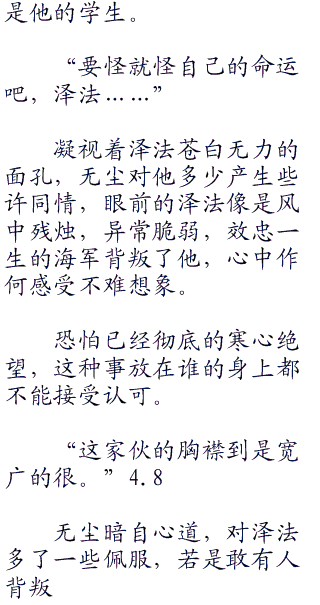 是他的学生。
“要怪就怪自己的命运
吧，泽法……”
凝视着泽法苍白无力的
面孔，无尘对他多少产生些
许同情，眼前的泽法像是风
中残烛，异常脆弱，效忠一
生的海军背叛了他，心中作
何感受不难想象。
恐怕已经彻底的寒心绝
望，这种事放在谁的身上都
不能接受认可。
“这家伙的胸襟到是宽
广的很。”4.8
无尘暗自心道，对泽法
多了一些佩服，若是敢有人
背叛